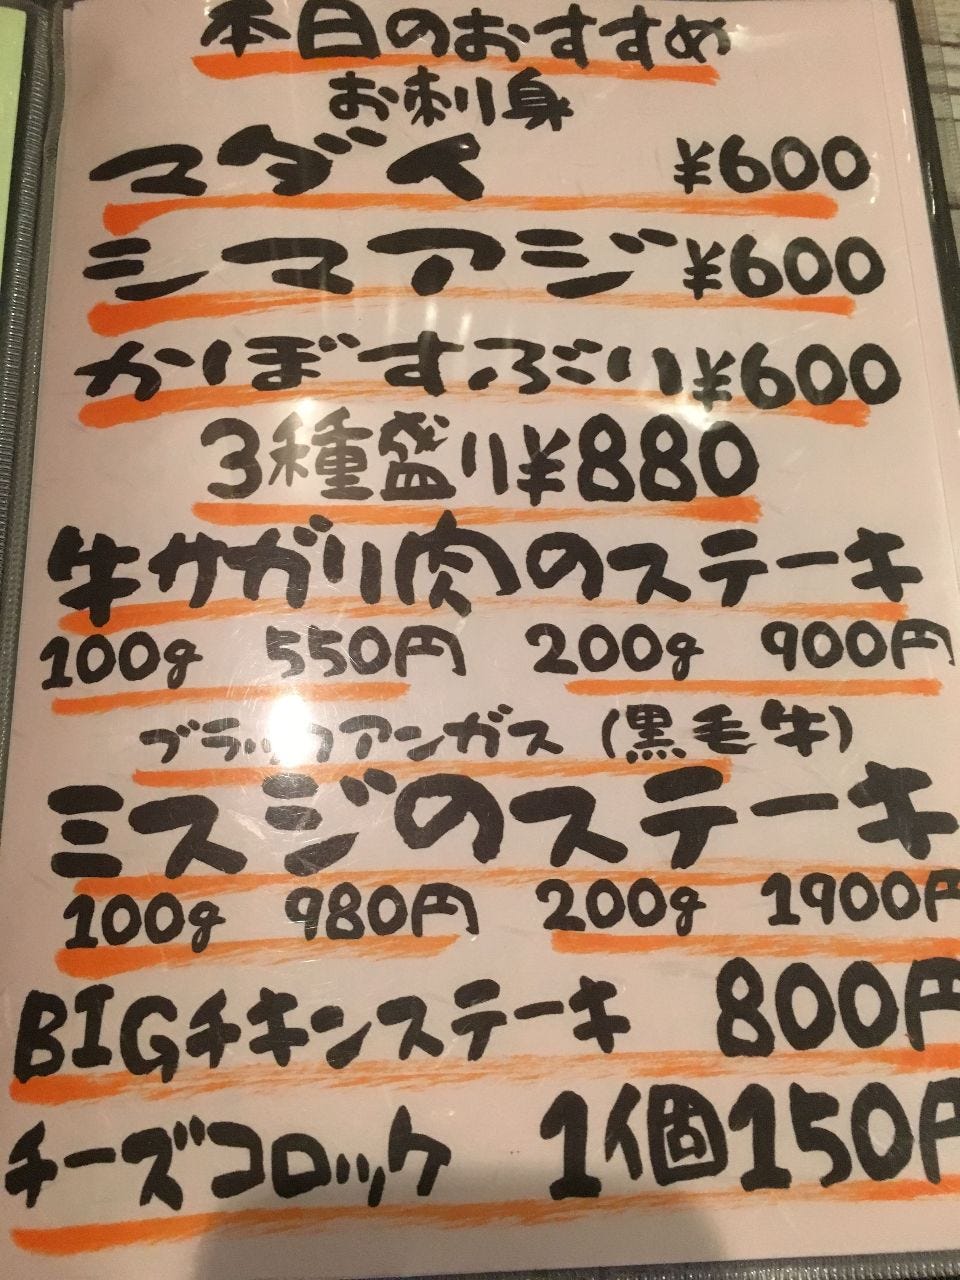 本日のおすすめ
お刺身
マダイ ¥600
シマアジ ¥600
かぼすぶり ¥600
3種盛り ¥880
牛サガリ肉のステーキ
100g 550円 200g 900円
ブラックアンガス (黒毛牛)
ミスジのステーキ
100g 980円 200g 1900円
BIGチキンステーキ 800円
チーズコロッケ 1個150円